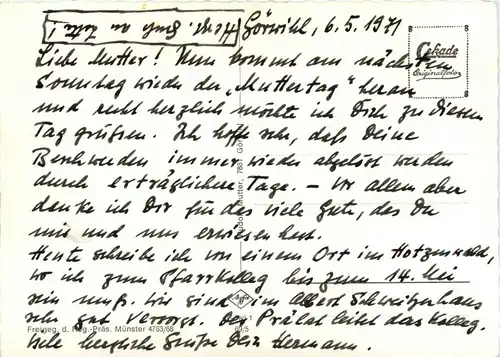 Herzl. Gruß an
Görwihl, 6.5.1971
Cekade
Originalfoto
Liebe Mutter! Nun kommt am nächsten
Sonntag wieder der „Muttertag" heran
und recht herzlich möchte ich Dich zu diesem
Tag grüßen. Ich hoffe sehr, daß Deine
Beschwerden immer wieder abgelöst werden
durch erträglichere Tage. – Vor allem aber
danke ich Dir für das viele Gute, das Du
mir und uns erwiesen hast.
Heute schreibe ich von einem Ort im Hotzenwald,
wo ich zum Pfarrkolleg bis zum 14. Mai
sein muß. Wir sind im Albert Schweitzerhaus
sehr gut versorgt. Der Prälat leitet das Kolleg.
Viele herzliche Grüße Dein Hermann.
Freigeg. d. Reg.-Präs. Münster 4753/68